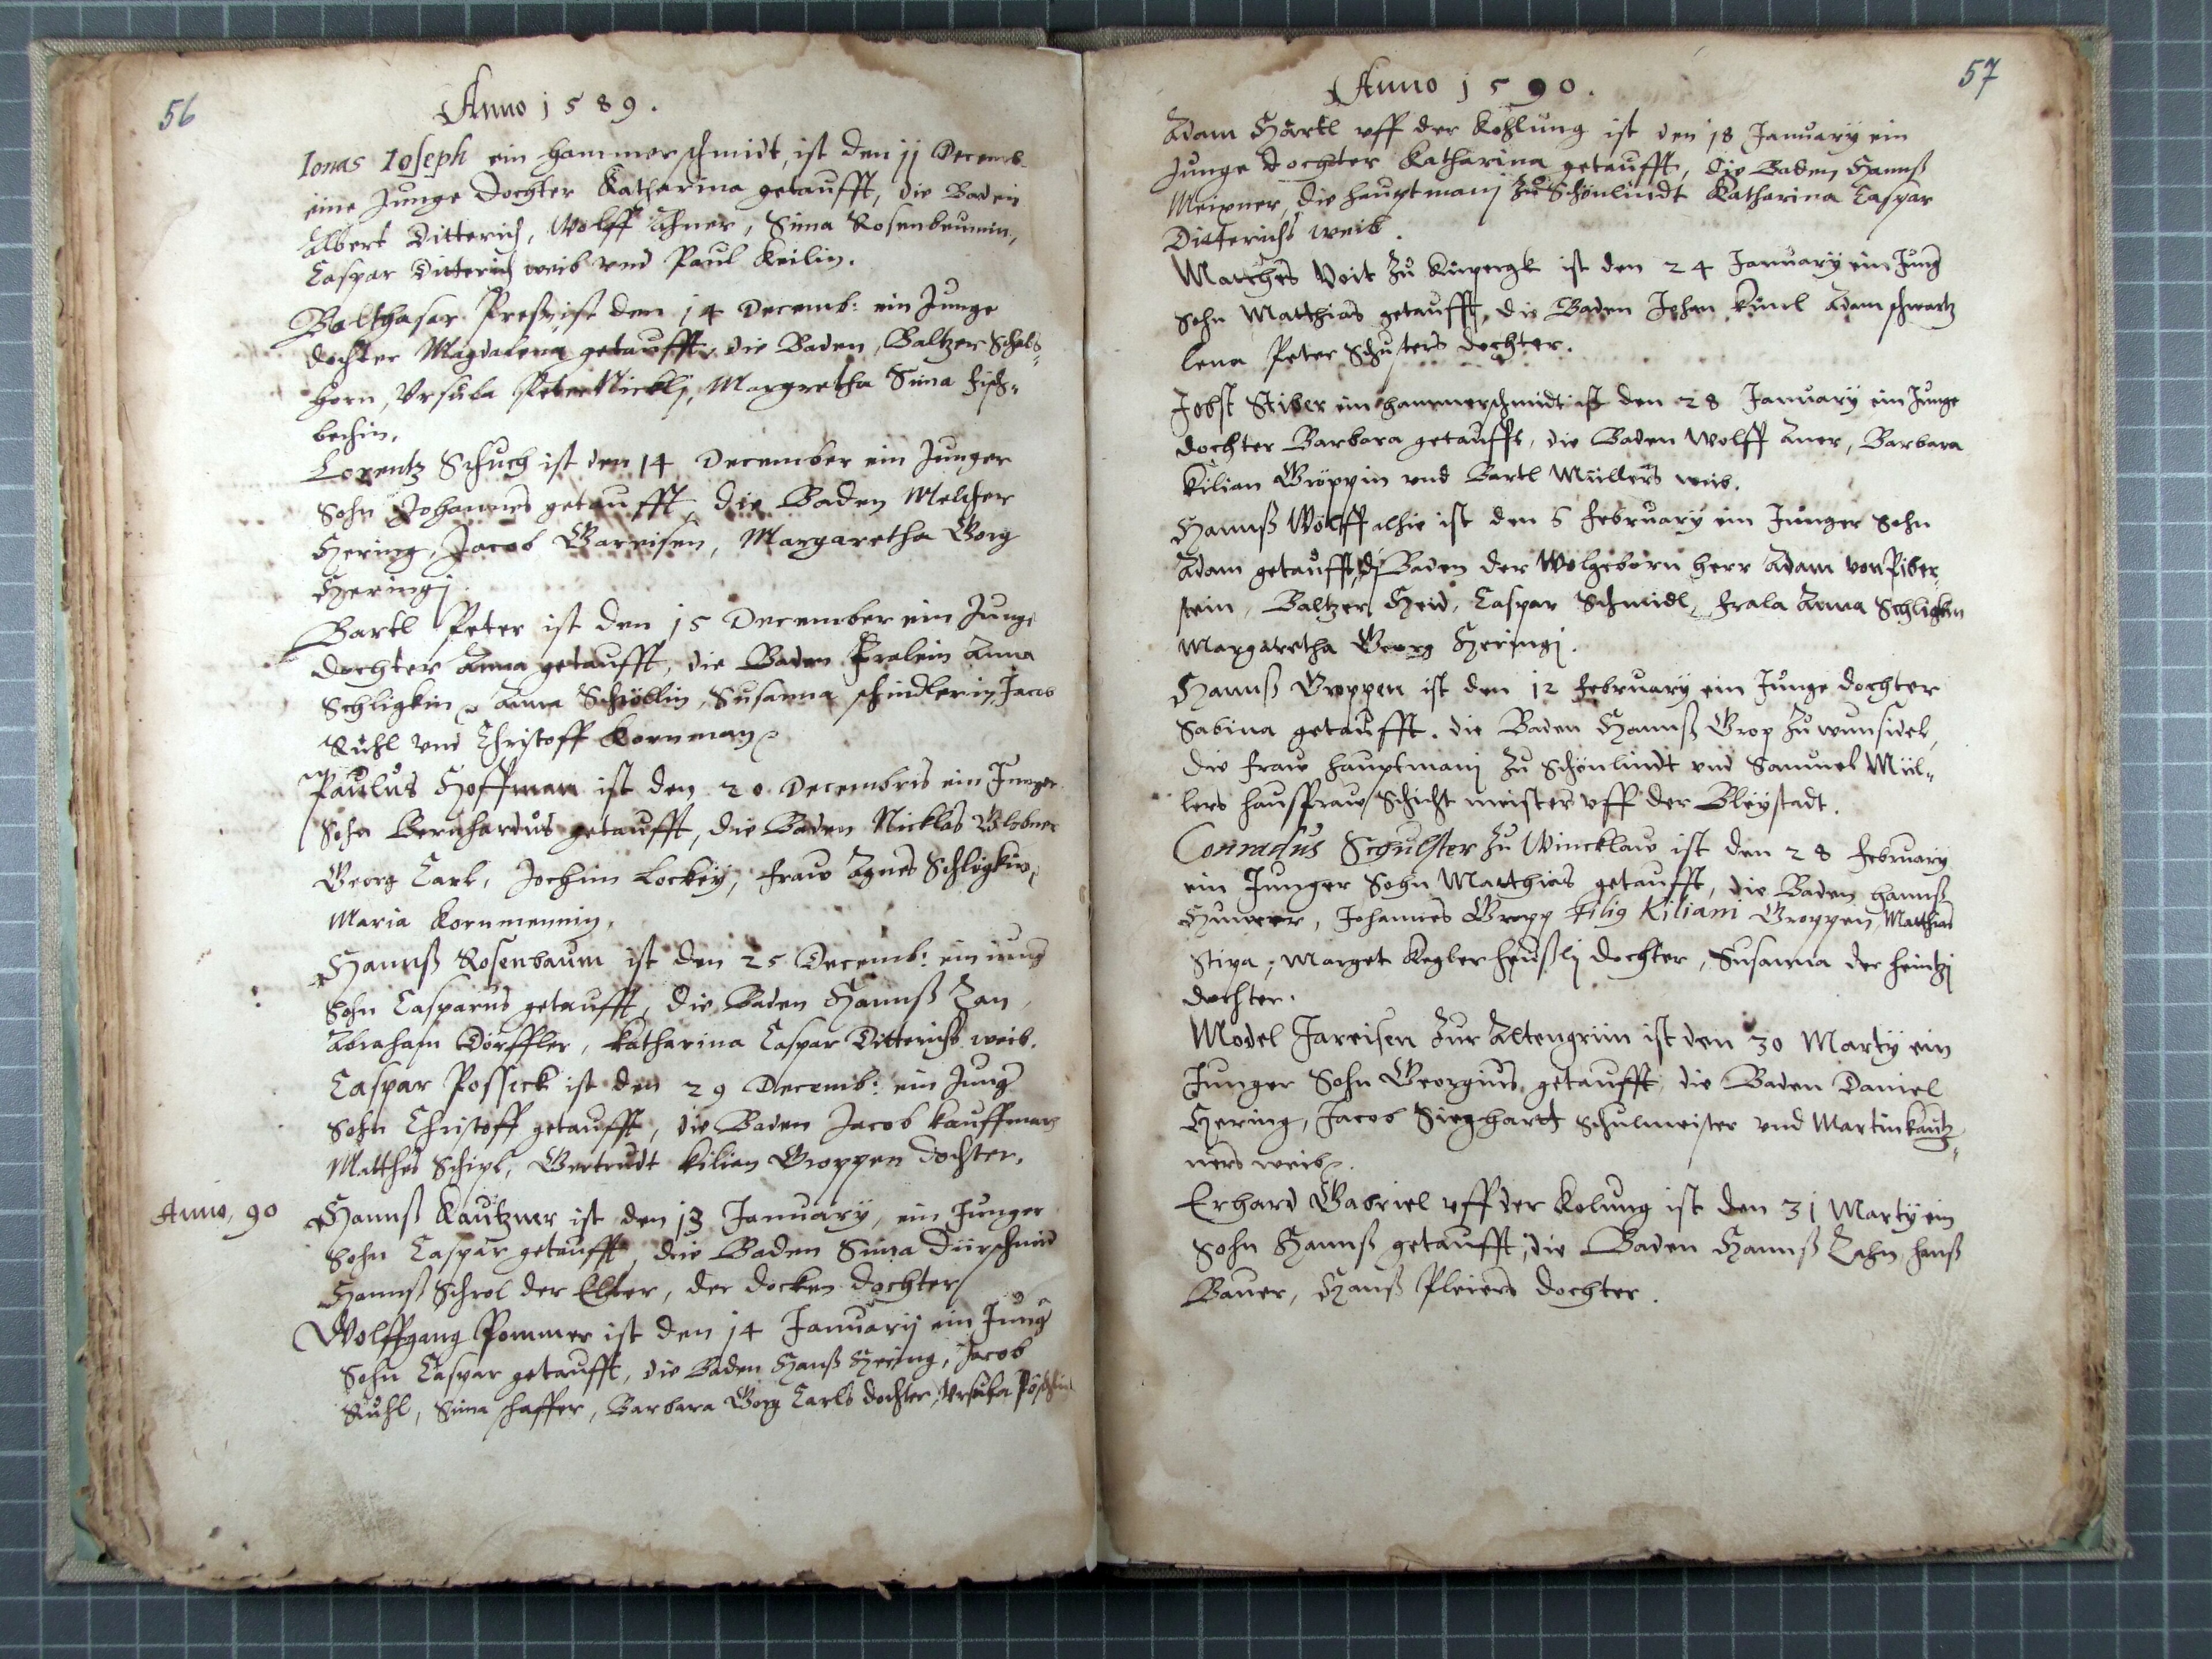 56
Anno 1589.
Ionas Ioseph ein hammerschmidt, ist den 11 Decemb.
eine Junge dochter Katharina getaufft, die Baden
Albert Ditterich, Wolff Ahner, Sima Rosenbeumin,
Caspar Ditterich weib vnd Paul Keilin.
Balthasar Preß ist den 14 Decemb: ein Junge
dochter Magdalena getaufft, die Baden, Baltzer Schels-
horn, Vrsula Peter Nickli, Margretha Sima fisch-
bechin.
Lorentz Schuch ist den 14 December ein Junger
Sohn Johannes getaufft, die Baden Melcher
Hering, Jacob Gareisen, Margaretha Georg
Heringj.
Bartl Peter ist den 15 December ein Junge
dochter Anna getaufft, die Baden Fralein Anna
Schligkin, Anna Schröllin, Susanna schindlerin, Jacob
Ruhl vnd Christoff Kornman
Paulus Hoffman ist den 20 Decembris ein Junger
Sohn Bernhardus getaufft, die Baden Nicklas Globner
Georg Carl, Jochim Lockey, fraw Agnes Schligkin,
Maria Kornmennin.
Hannß Rosenbaum ist den 25 Decemb: ein iung
Sohn Casparus getaufft, die Baden Hannß Zan,
Abraham Dörffler, Katharina Caspar Ditterichs weib.
Caspar Posseck ist den 29 Decemb: ein Jung
Sohn Christoff getaufft, die Baden Jacob Kauffman
Matthes Schipl, Gertrudt Kilian Groppen dochter.
Anno, 90
Hannß Kautzner ist den 13 January, ein Junger
Sohn Caspar getaufft, die Baden Sima Dürschmid
Hannß Schrol der Elter, der docken dochter
Wolffgang Pommer ist den 14 January ein Jung
Sohn Caspar getaufft, die Baden Hanß Hering, Jacob
Ruhl, Sima schaffer, Barbara Georg Carls dochter, Vrsula
57
Anno 1590.
Adam Härtl vff der Kohlung ist den 18 January ein
Junge dochter Katharina getaufft, die Baden Hannß
Meixner, die hauptmanj zu Schönlindt Katharina Caspar
Ditterichs weib.
Matthes Voit zu Küpergk ist den 24 January ein Jung
Sohn Matthias getaufft, die Baden Johan Adam schwartz
lena Peter Schusters dochter.
Jobst Stiber ein hammerschmidt ist den 28 January ein Junge
dochter Barbara getaufft, die Baden Wolff Aner, Barbara
Kilian Gröppin vnd Bartl Müllers weib.
Hannß Wolff alhie ist den 5 february ein Junger Sohn
Adam getaufft, di Baden der Wolgeborn herr Adam von Piber-
stein, Baltzer Heid, Caspar Schmidl, frala Anna Schligkin
Margaretha Georg Heringj.
Hannß Groppen ist den 12 february ein Junge dochter
Sabina getaufft. die Baden Hannß Grop zu wunsidel,
die fraw hauptmanj zu Schönlindt vnd Samuel Mül-
lers hausfraw Schicht meisters vff der Bleystadt.
Conradus Schuster zu Wincklaw ist den 28 february
ein Junger Sohn Matthias getaufft, die Baden hannß
Johannes Gropp filig Kiliani Groppen, Matthias
Stipa, Marget Keglerheußlj dochter, Susanna der heintzj
dochter.
Model Jareisen zur Altengrün ist den 30 Marty ein
Junger Sohn Georgius getaufft, die Baden Daniel
Hering, Jacob Sieghardt Schulmeister vnd Martin Kautz-
ners weib.
Erhard Gabriel vff der Kolung ist den 31 Marty ein
Sohn Hannß getaufft, die Baden Hannß Zahn, hanß
Bauer, Hanß Pleiers dochter.